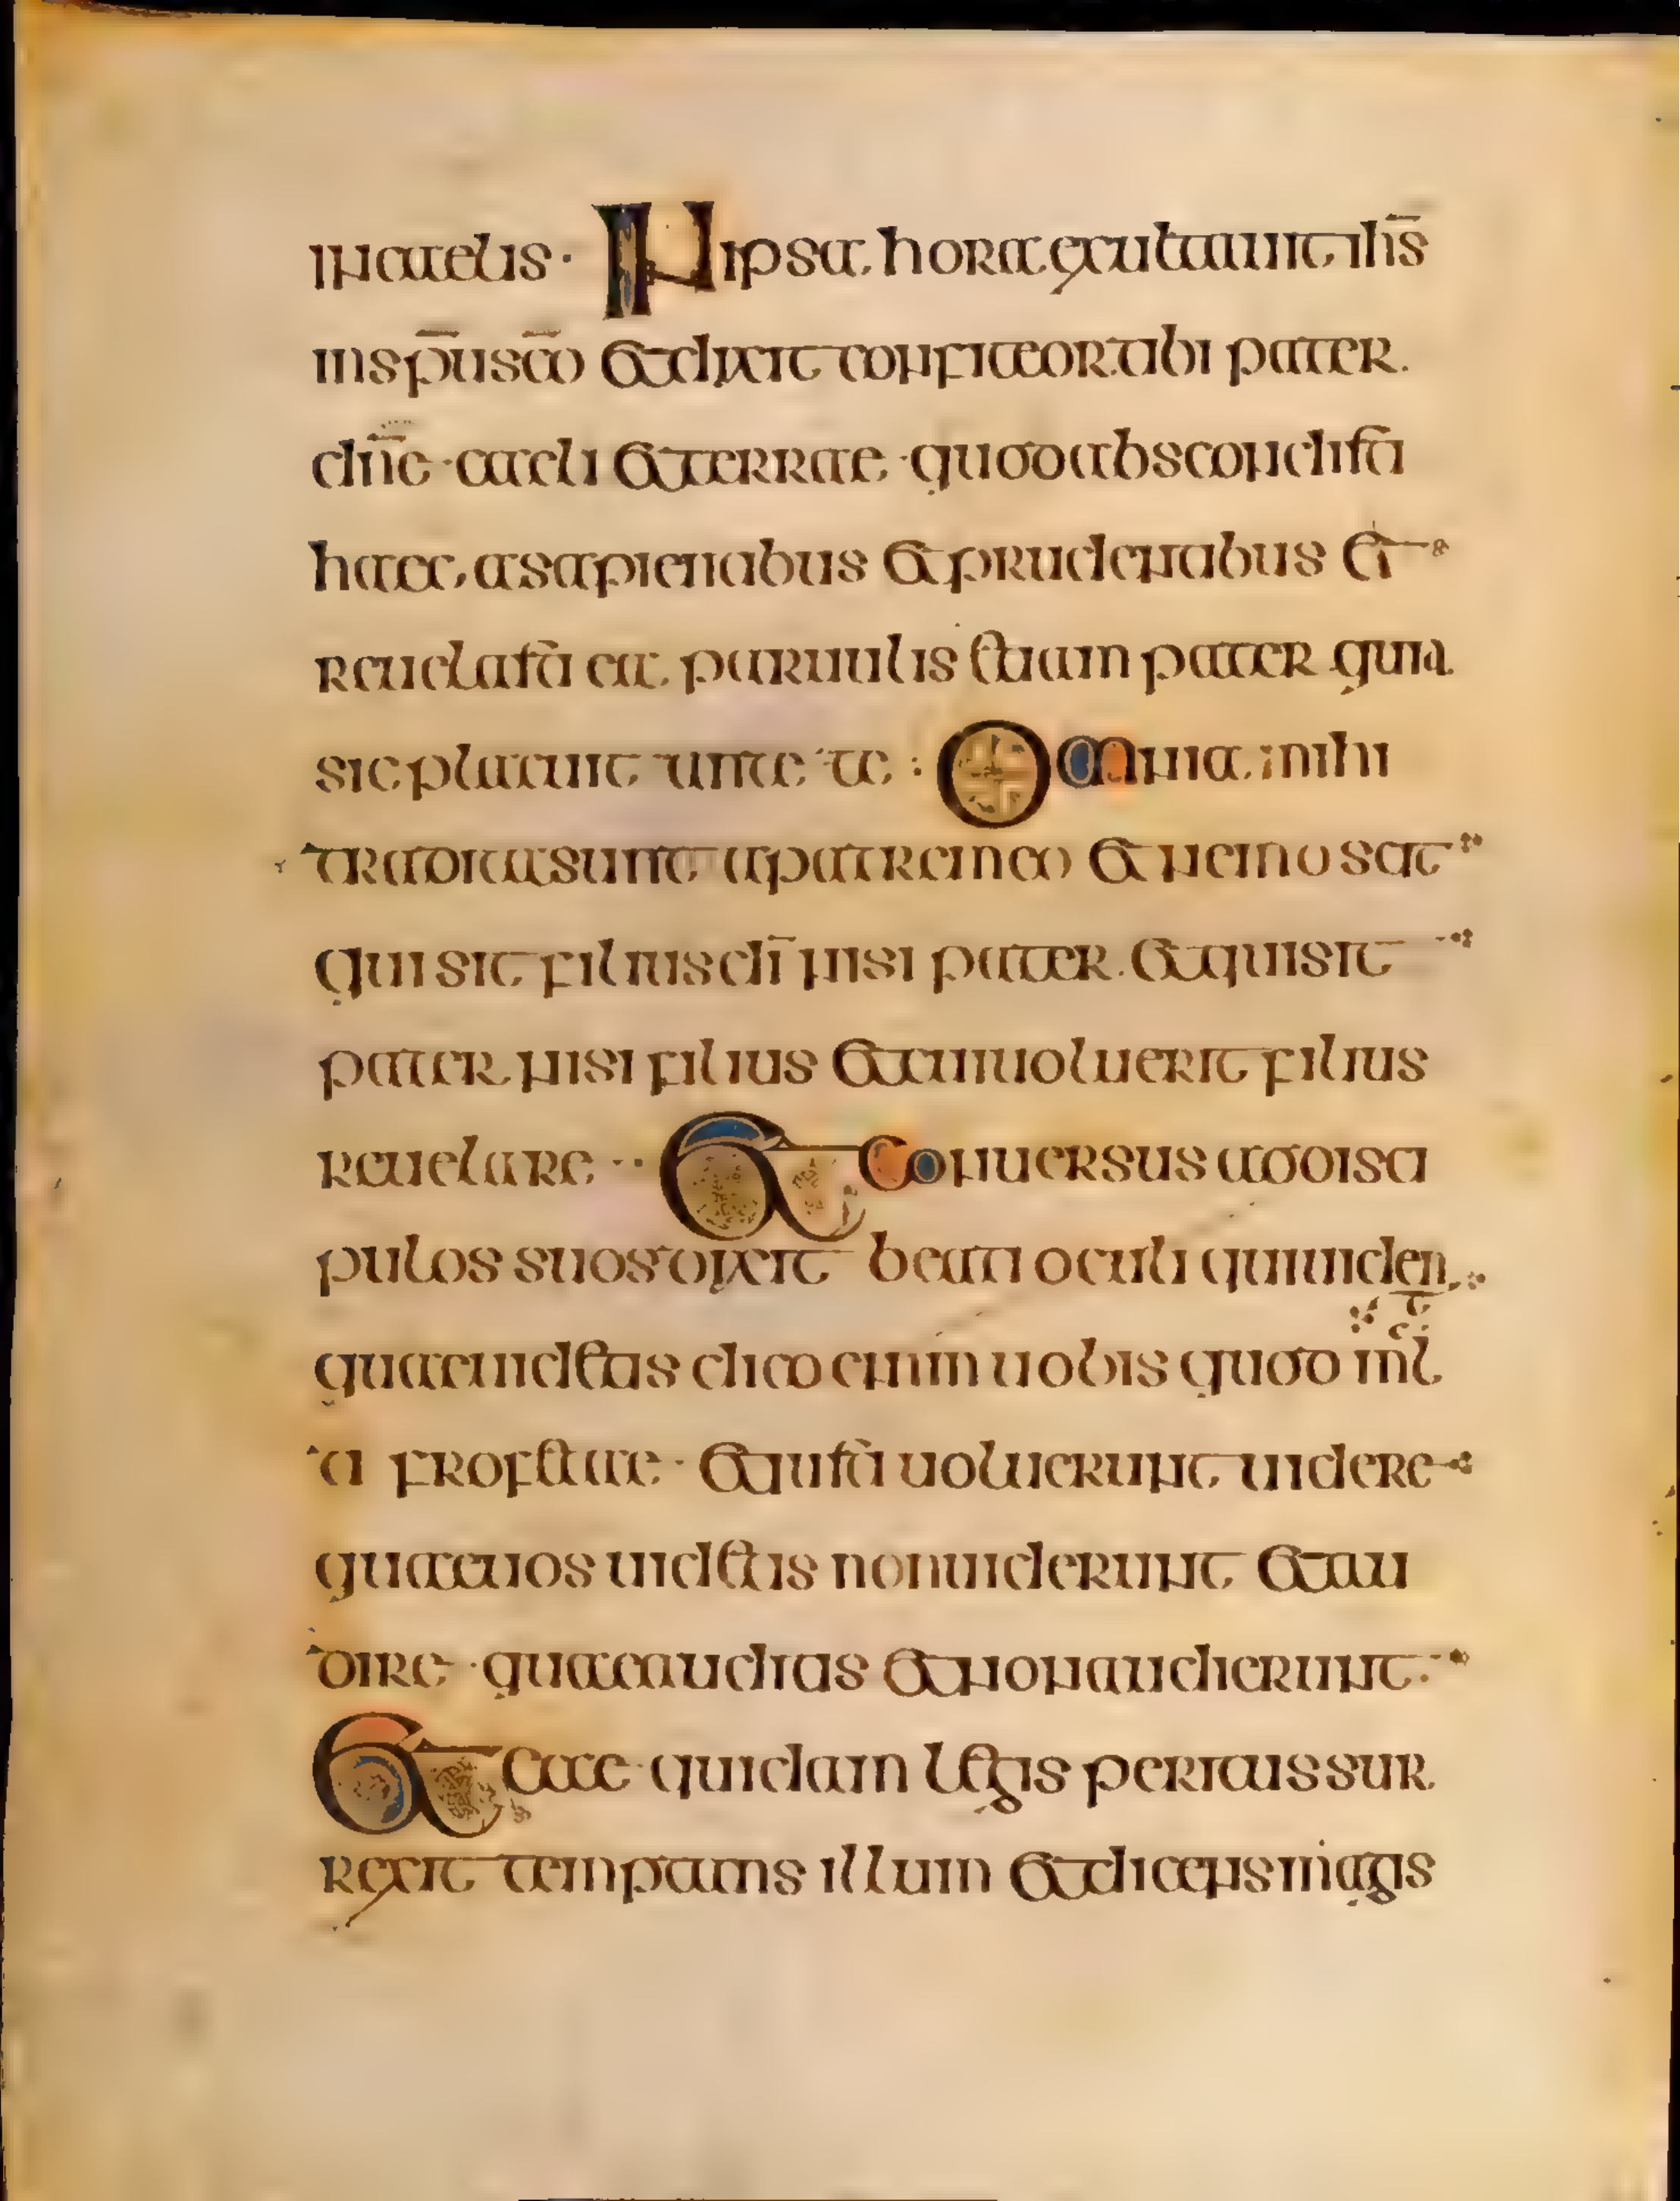 incaelis · IN ipsa hora exultauit ihs̄
in sp̄u sc̄o et dixit confiteor tibi pater
dn̄e caeli et terrae quod abscondisti
haec a sapientibus et prudentibus et
reuelasti ea paruulis etiam pater quia
sic placuit ante te : Omnia mihi
tradita sunt a patre meo et nemo scit
qui sit filius di̅ nisi pater et qui sit
pater nisi filius et cui uoluerit filius
reuelare ·· Et conuersus ad disci
pulos suos dixit beati oculi qui uident
quae uidetis dico enim uobis quod mul
ti profetae · et iusti uoluerunt uidere
quae uos uidetis non uiderunt et au
dire quae auditis et non audierunt
Et ecce quidam legis peritus sur
rexit temptans illum et dicens mag̅is